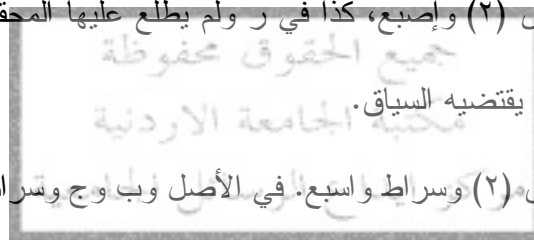 (٢) وإصبع، كذا في ر ولم يطلع عليها
جميع الحقوق محفوظة
يقتضيه السياق.
مكتبة الجامعة الاردنية
(٢) وسراط واسبع. في الأصل وب وج